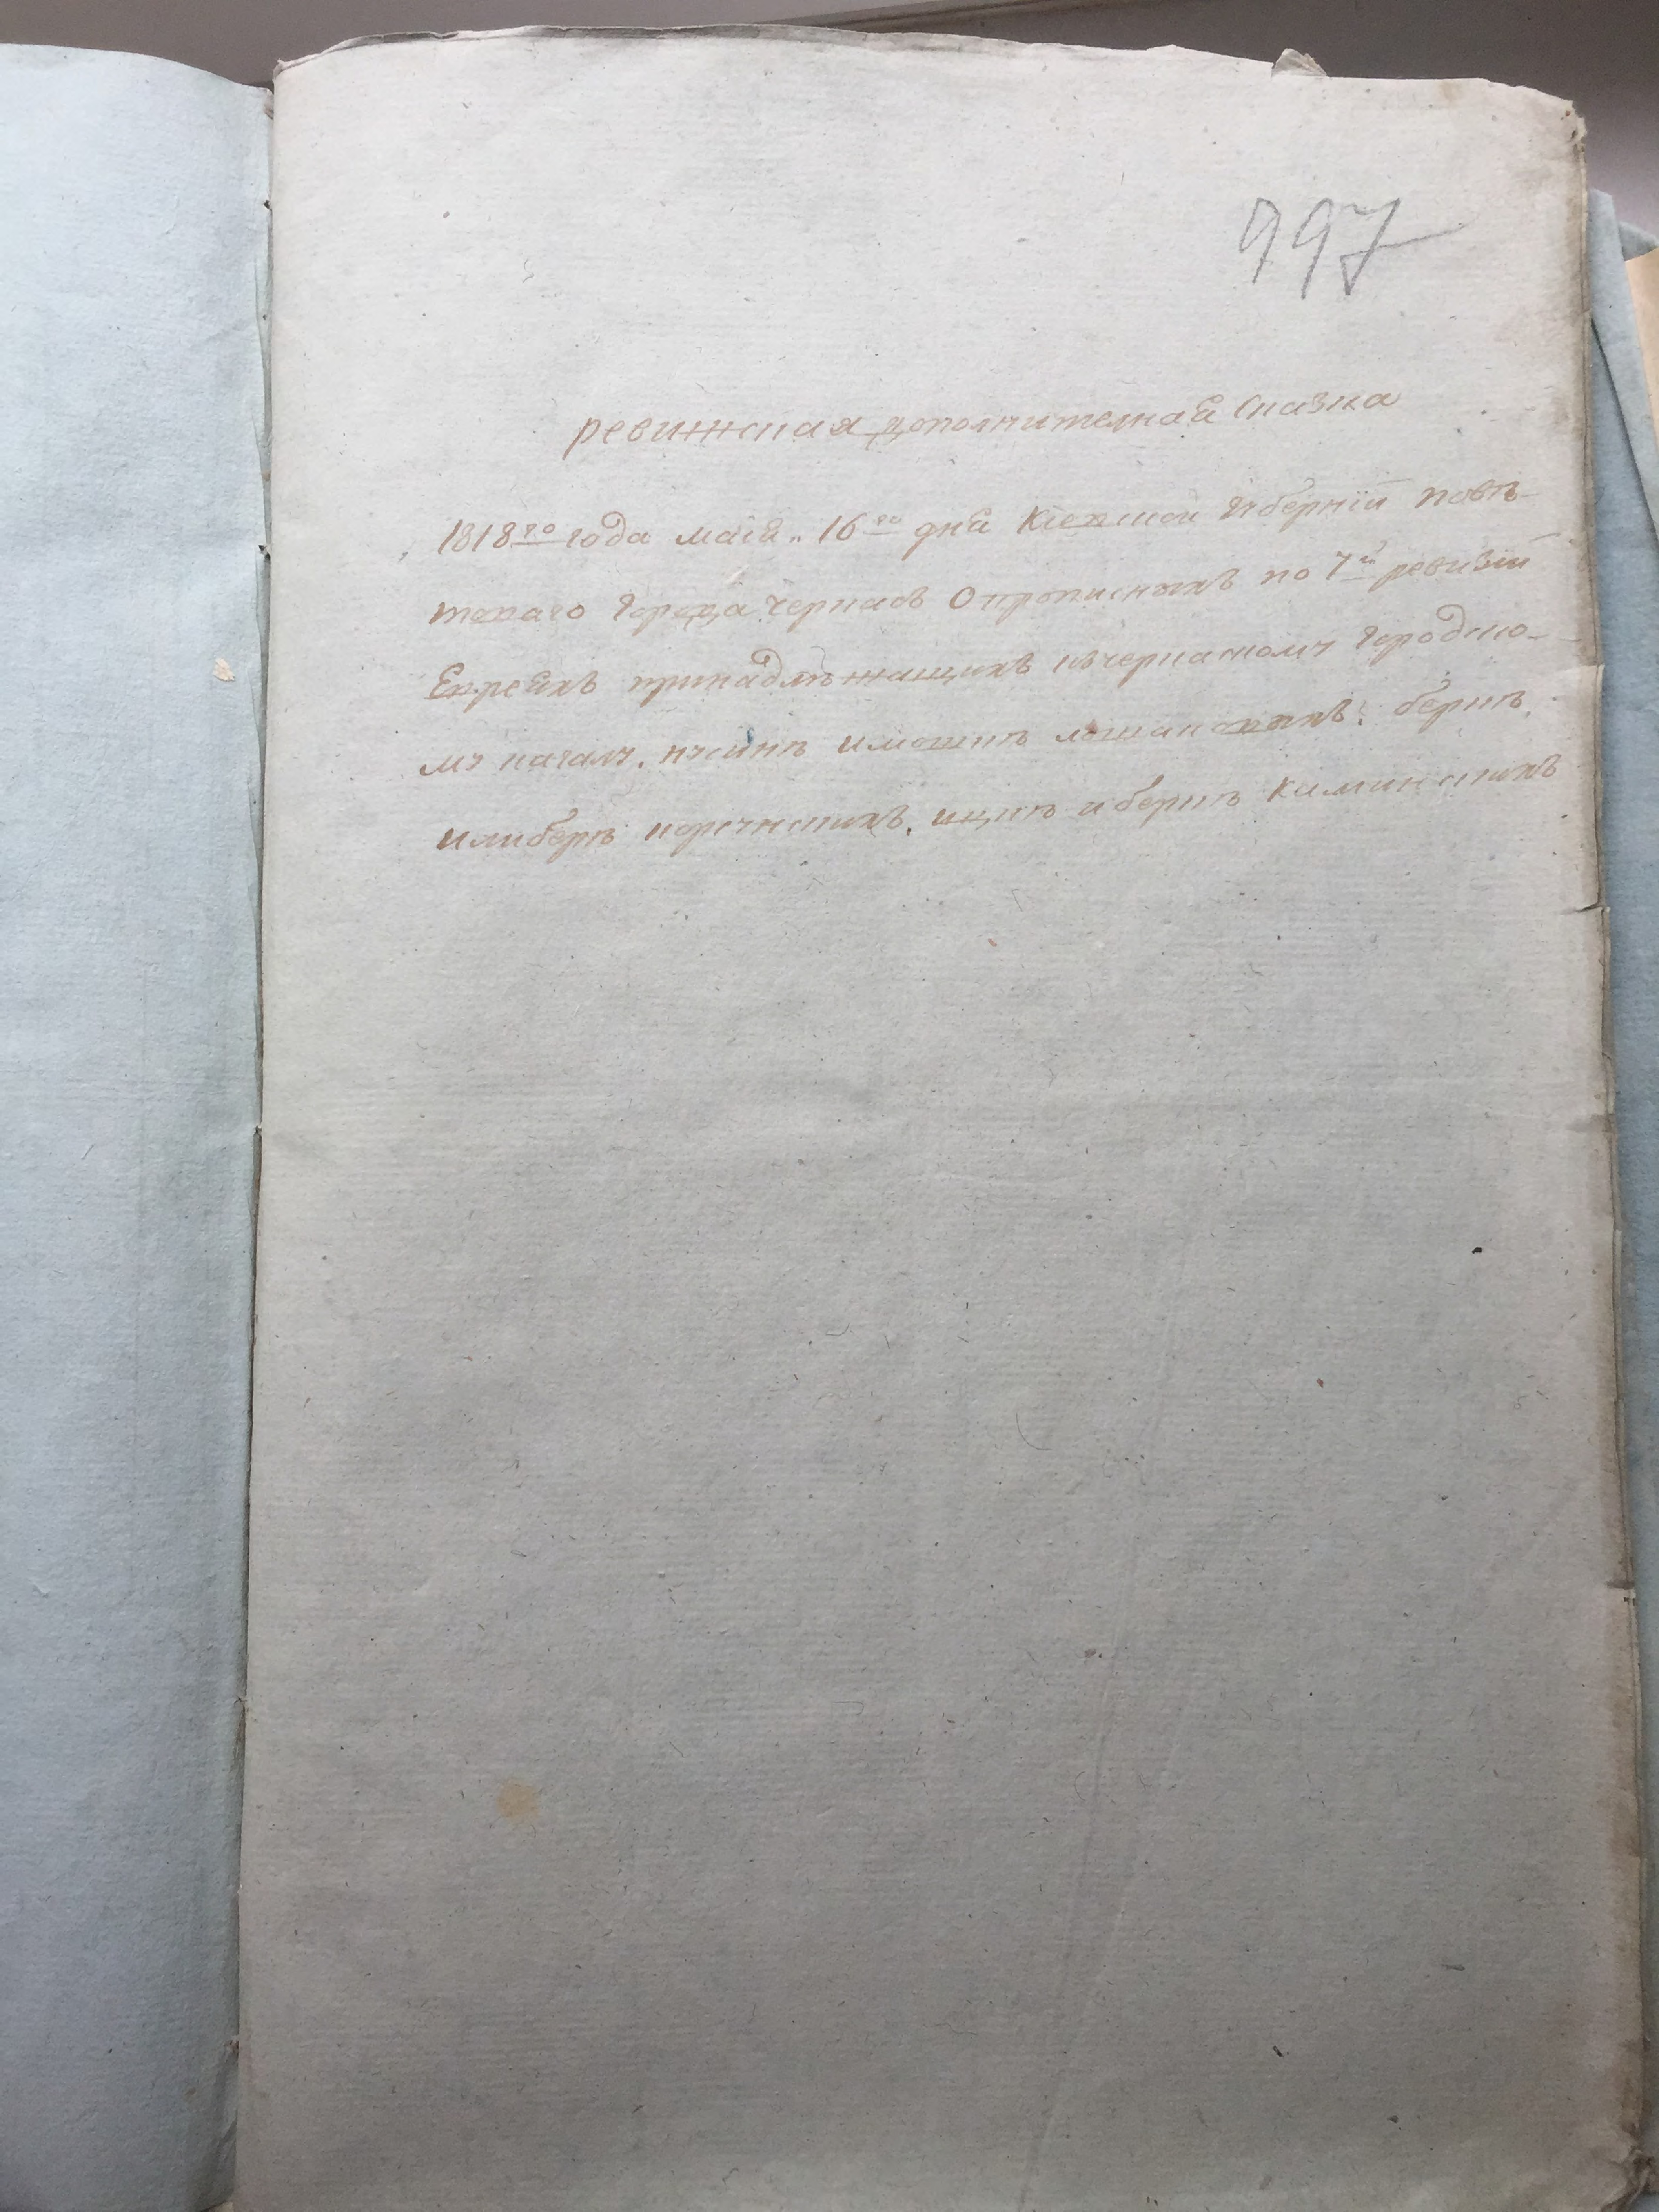 997
ревижская дополнителная Сказка
1818го года маия 16го дня Кіевской Губерніи повѣ-
товаго Города Черкасъ О прописныхъ по 7й ревизіи
Евреяхъ принадлѣжащихъ кЧеркаскому Городско-
му кагалу. иМошкѣ Берке
Ицкѣ и беркѣ Каминскихъ